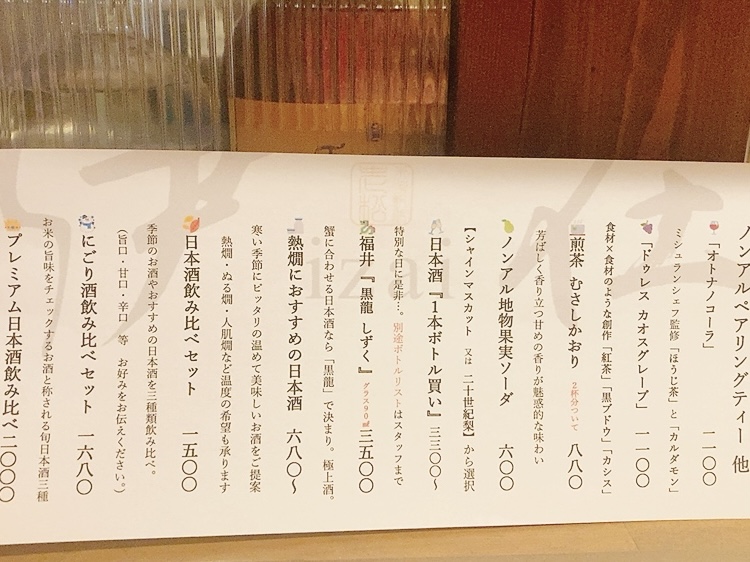 ノンアルペアリングティー 他
「オトナノコーラ」 一一〇〇
ミシュランシェフ監修「ほうじ茶」と「カルダモン」
「ドゥレス カオスグレープ」 一一〇〇
食材×食材のような創作「紅茶」「黒ブドウ」「カシス」
煎茶 むさしかおり 2杯分ついて 八八〇
芳ばしく香り立つ甘めの香りが魅惑的な味わい
ノンアル地物果実ソーダ 六〇〇
【シャインマスカット 又は 二十世紀梨】から選択
日本酒『1本ボトル買い』 三三〇〇〜
特別な日に是非…。別途ボトルリストはスタッフまで
福井『黒龍 しずく』 グラス90㎖ 三五〇〇
蟹に合わせる日本酒なら「黒龍」で決まり。極上酒。
熱燗におすすめの日本酒 六八〇〜
寒い季節にピッタリの温めて美味しいお酒をご提案
熱燗・ぬる燗・人肌燗など温度の希望も承ります
日本酒飲み比べセット 一五〇〇
季節のお酒やおすすめの日本酒を三種類飲み比べ。
（旨口・甘口・辛口 等 お好みをお伝えください。）
にごり酒飲み比べセット 一六八〇
お米の旨味をチェックするお酒と称される旬日本酒三種
プレミアム日本酒飲み比べ 二〇〇〇
izai